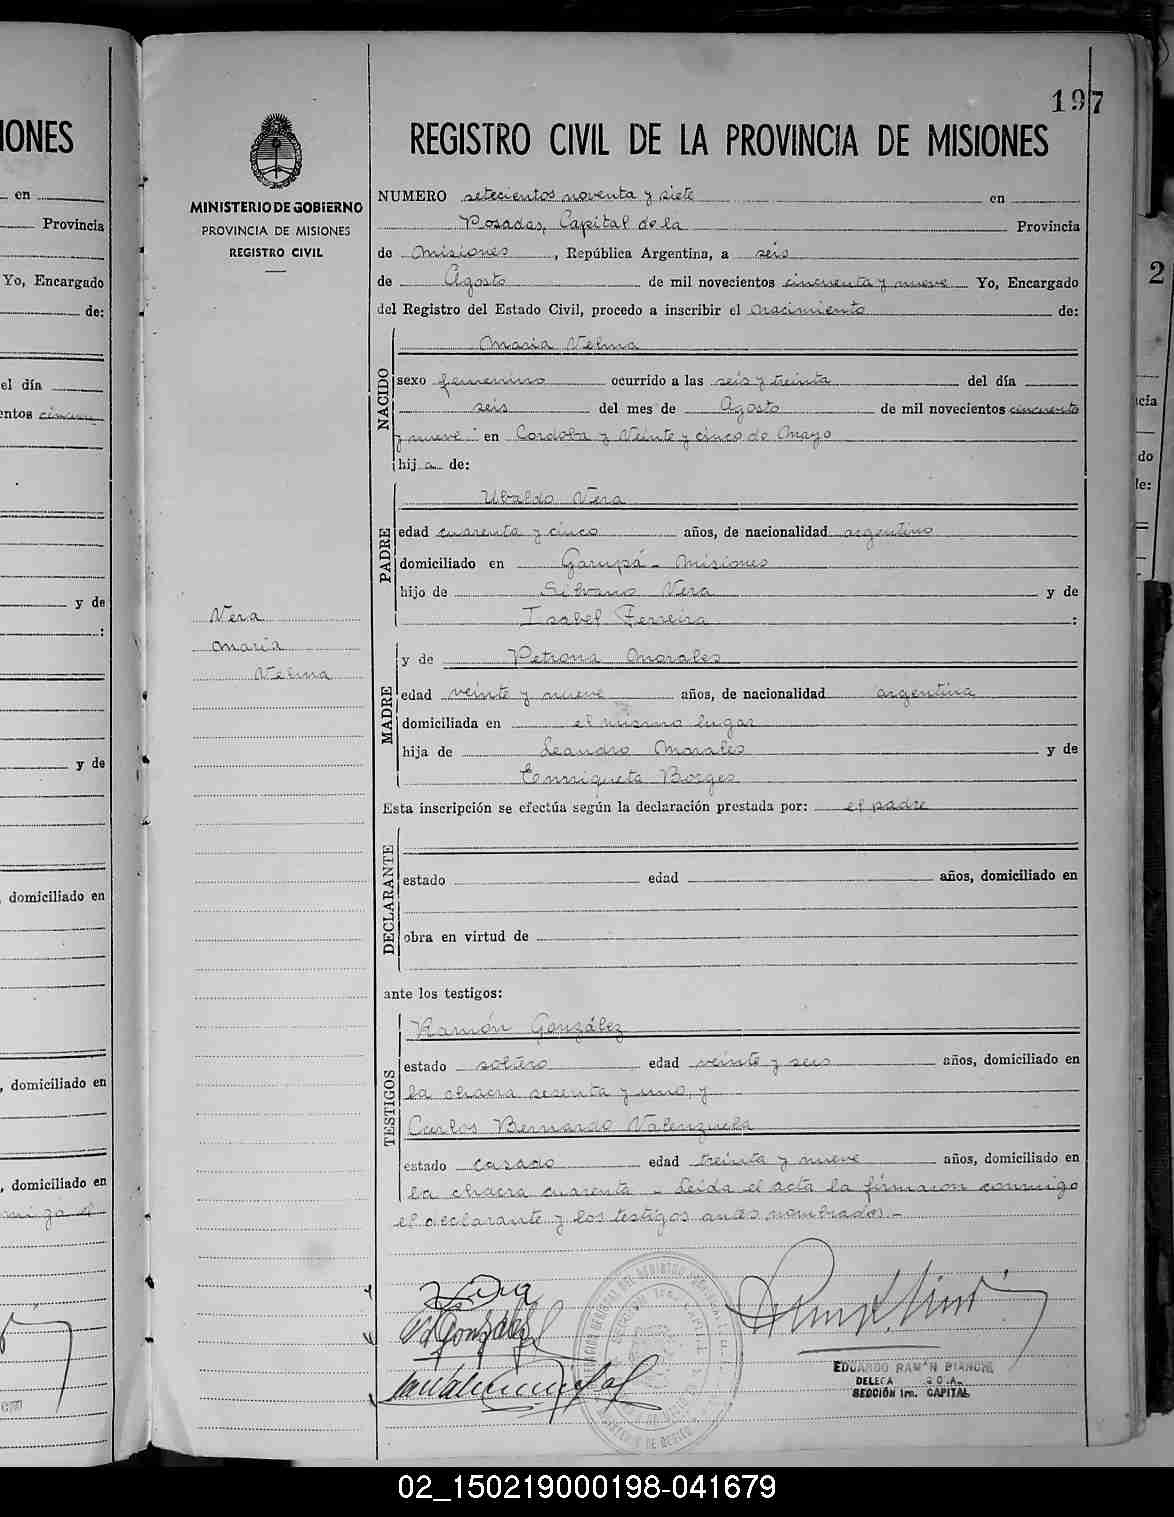 197
REGISTRO CIVIL DE LA PROVINCIA DE MISIONES
MINISTERIO DE GOBIERNO
PROVINCIA DE MISIONES
REGISTRO CIVIL
NUMERO setecientos noventa y siete en
Posadas, Capital de la Provincia
de Misiones, República Argentina, a seis
de Agosto de mil novecientos cincuenta y nueve Yo, Encargado
del Registro del Estado Civil, procedo a inscribir el nacimiento de:
NACIDO
Maria Velma
sexo femenino ocurrido a las seis y treinta del día
seis del mes de Agosto de mil novecientos cincuenta
y nueve en Cordoba y Veinte y cinco de Mayo
hij a de:
PADRE
Ubaldo Vera
edad cuarenta y cinco años, de nacionalidad argentino
domiciliado en Garupá - Misiones
hijo de Silvano Vera y de
Isabel Ferreira :
Vera
Maria
Velma
MADRE
y de Petrona Morales
edad veinte y nueve años, de nacionalidad argentina
domiciliada en el mismo lugar
hija de Leandro Morales y de
Enriqueta Borges
Esta inscripción se efectúa según la declaración prestada por: el padre
DECLARANTE
estado edad años, domiciliado en
obra en virtud de
ante los testigos:
TESTIGOS
Ramón González
estado soltero edad veinte y seis años, domiciliado en
la chacra sesenta y uno, y
Carlos Bernardo Valenzuela
estado casado edad treinta y nueve años, domiciliado en
la chacra cuarenta - Leída el acta la firmaron conmigo
el declarante y los testigos antes nombrados.-
Vera
González
EDUARDO RAMÓN BIANCHI
SECCIÓN 1ra. CAPITAL
IONES
en
Provincia
Yo, Encargado
de:
el día
entos
y de
:
y de
domiciliado en
, domiciliado en
, domiciliado en
2
cia
do
de:
02_150219000198-041679